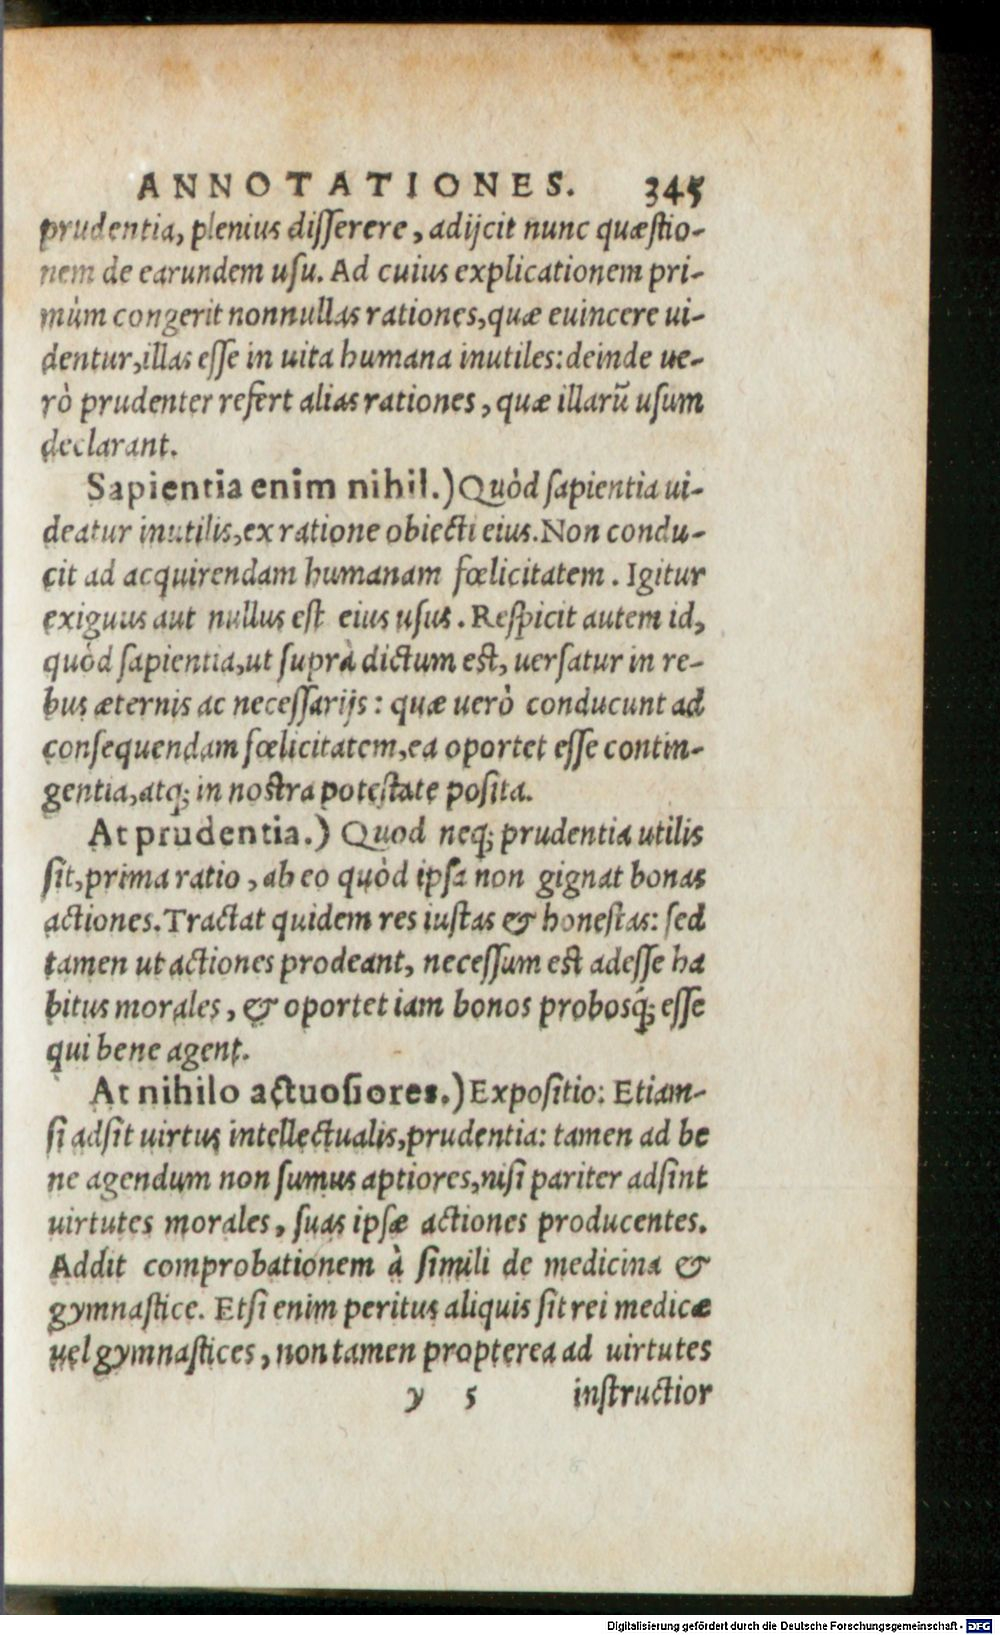 ANNOTATIONES. 345
prudentia, plenius disserere, adijcit nunc quæstio-
nem de earundem usu. Ad cuius explicationem pri-
mùm congerit nonnullas rationes, quæ euincere ui-
dentur, illas esse in uita humana inutiles: deinde ue-
rò prudenter refert alias rationes, quæ illarũ usum
declarant.
Sapientia enim nihil.) Quòd sapientia ui-
deatur inutilis, ex ratione obiecti eius. Non condu-
cit ad acquirendam humanam fœlicitatem. Igitur
exiguus aut nullus est eius usus. Respicit autem id,
quòd sapientia, ut suprà dictum est, uersatur in re-
bus æternis ac necessarijs: quæ uerò conducunt ad
consequendam fœlicitatem, ea oportet esse contin-
gentia, atq; in nostra potestate posita.
At prudentia.) Quod neq; prudentia utilis
sit, prima ratio, ab eo quòd ipsa non gignat bonas
actiones. Tractat quidem res iustas & honestas: sed
tamen ut actiones prodeant, necessum est adesse ha
bitus morales, & oportet iam bonos probosq́; esse
qui bene agent.
At nihilo actuosiores.) Expositio: Etiam-
si adsit uirtus intellectualis, prudentia: tamen ad be
ne agendum non sumus aptiores, nisi pariter adsint
uirtutes morales, suas ipsæ actiones producentes.
Addit comprobationem à simili de medicina &
gymnastice. Etsi enim peritus aliquis sit rei medicæ
uel gymnastices, non tamen propterea ad uirtutes
y 5 instructior
Digitalisierung gefördert durch die Deutsche Forschungsgemeinschaft - DFG